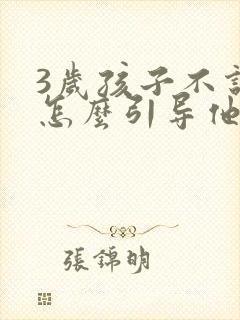 3歲孩子不
怎麼引导他
張錦明